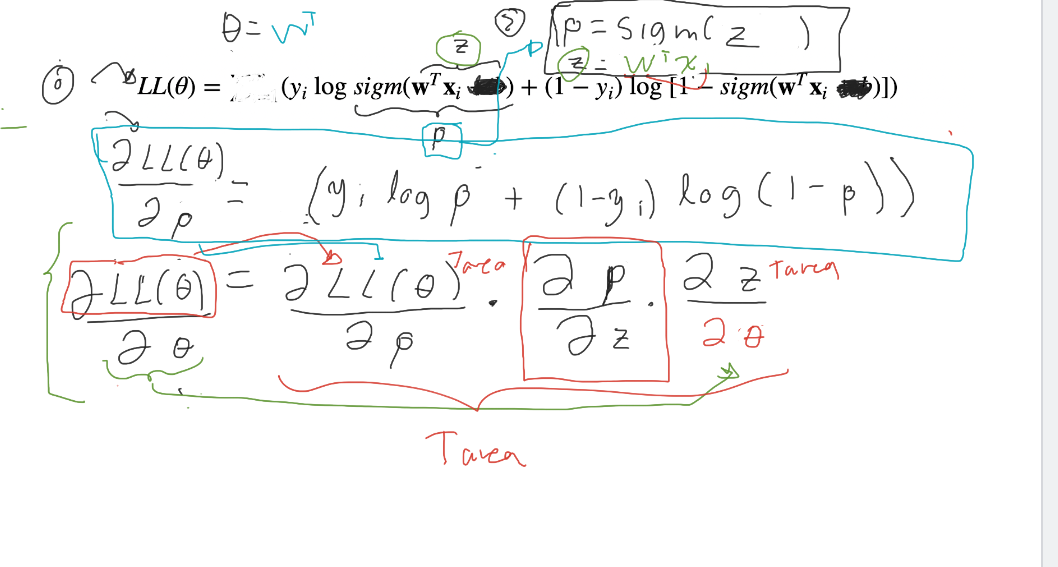 θ = Wᵀ
p = Sigm( z )
z z = Wᵀx
LL(θ) = (yᵢ log sigm(wᵀxᵢ ) + (1 − yᵢ) log [1 − sigm(wᵀxᵢ )])
p
∂LL(θ)/∂p = (yᵢ log p + (1-yᵢ) log (1 - p))
∂LL(θ)/∂θ = ∂LL(θ)/∂p Tarea · ∂p/∂z · ∂z/∂θ Tarea
Tarea